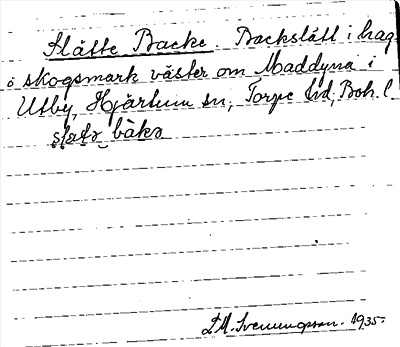 Slätte Backe. Backslätt i hag
o skogsmark väster om Maddyna i
Utby, Hjärtum sn, Torpe hd, Boh. l.
Svenungsson. 1935.